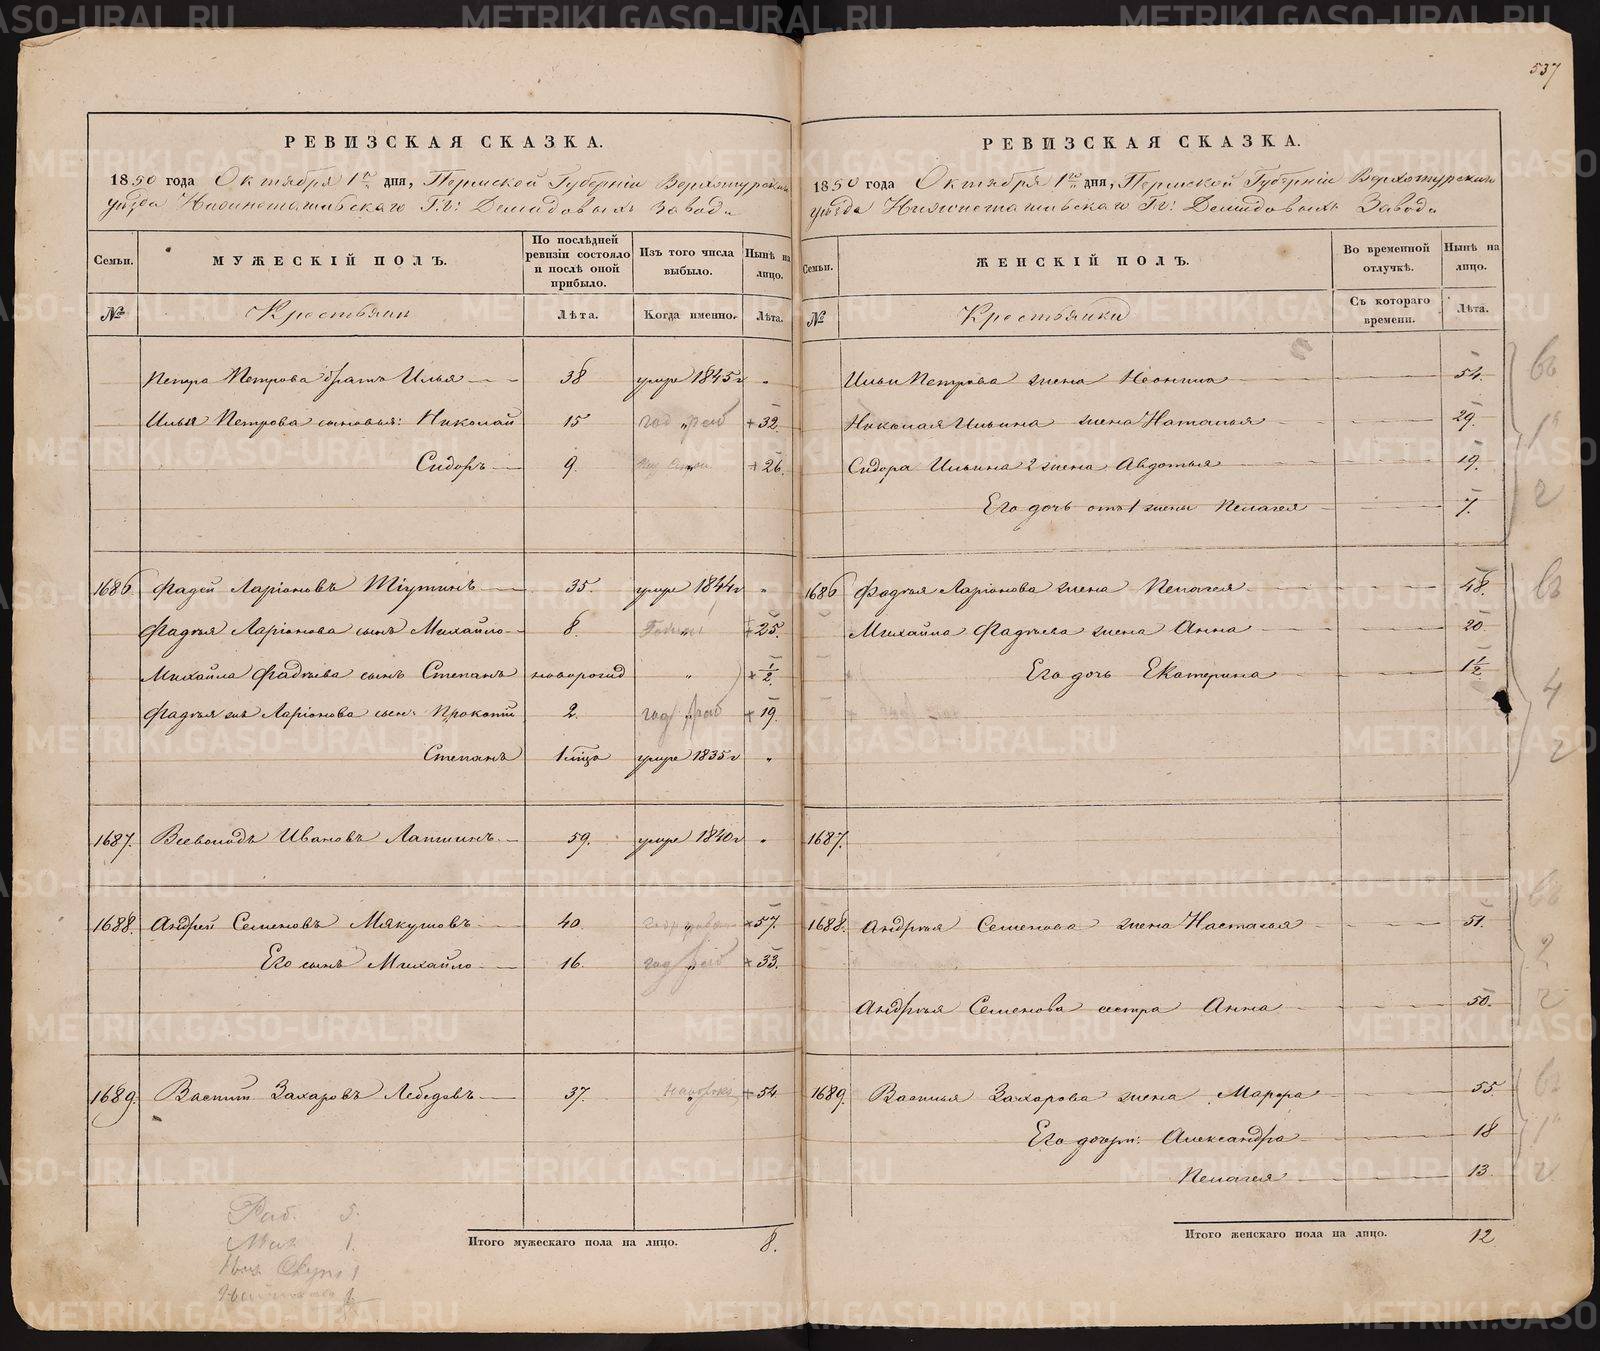 537
РЕВИЗСКАЯ СКАЗКА.
1850 года Октября 1го дня, Пермской Губерніи Верхотурскаго
уѣзда Нижнетагильскаго Гг: Демидовыхъ Завода
Семьи. МУЖЕСКІЙ ПОЛЪ. По послѣдней ревизіи состояло и послѣ оной прибыло. Изъ того числа выбыло. Нынѣ на лицо.
№ Крестьяни Лѣта. Когда именно. Лѣта.
Петра Петрова братъ Илья 38 умре 1845г "
Ильи Петрова сыновья: Николай 15 год раб 32.
Сидоръ 9. " 26.
1686 Фадей Ларіоновъ Шіутинъ 35. умре 1844г "
Фадѣя Ларіонова сынъ Михайло 8. " 25.
Михайла Фадѣева сынъ Степанъ новорожд " 1/2.
Фадѣя же Ларіонова сын: Прокопій 2. год раб 19.
Степанъ 1 мѣца умре 1835г "
1687. Всеволодъ Ивановъ Лапшинъ 59. умре 1840г "
1688. Андрей Семеновъ Мякушовъ 40 " 57.
Его сынъ Михайло 16. год раб 33.
1689. Василій Захаровъ Лебедевъ 37. " 54
Раб. 5.
1.
1
Итого мужескаго пола на лицо. 8.
РЕВИЗСКАЯ СКАЗКА.
1850 года Октября 1го дня, Пермской Губерніи Верхотурскаго
уѣзда Нижнетагильскаго Гг: Демидовыхъ Завода
Семьи. ЖЕНСКІЙ ПОЛЪ. Во временной отлучкѣ. Нынѣ на лицо.
№ Крестьянки Съ котораго времени. Лѣта.
Ильи Петрова жена Неонила 54.
Николая Ильина жена Наталья 29.
Сидора Ильина 2 жена Авдотья 19.
Его дочь отъ 1 жены Пелагея 7.
1686 Фадѣя Ларіонова жена Пелагея 48.
Михайла Фадѣева жена Анна 20
Его дочь Екатерина 1 1/2.
4
2
1687.
1688. Андрѣя Семенова жена Настасья 51.
2
Андрѣя Семенова сестра Анна 50.
1689. Василья Захарова жена Марфа 55
Его дочери: Александра 18
Пелагея 13.
Итого женскаго пола на лицо. 12
METRIKI.GASO-URAL.RU